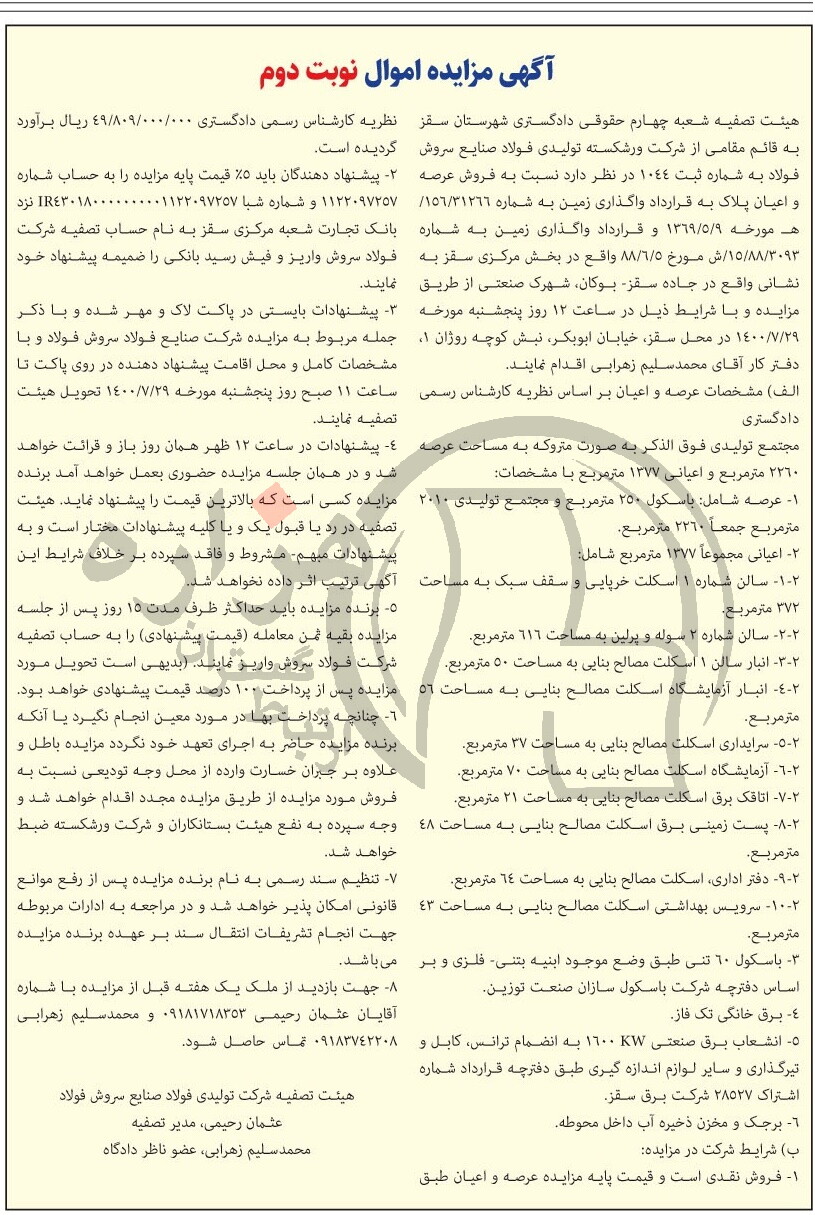 آگهی مزایده اموال نوبت دوم
هیئت تصفیه شعبه چهارم حقوقی دادگستری شهرستان سقز
به قائم مقامی از شرکت ورشکسته تولیدی فولاد صنایع سروش
فولاد به شماره ثبت ۱۰۴۴ در نظر دارد نسبت به فروش عرصه
و اعیان پلاک به قرارداد واگذاری زمین به شماره ۱۵۶/۳۱۲۶۶/
هـ مورخه ۱۳۶۹/۵/۹ و قرارداد واگذاری زمین به شماره
۱۵/۸۸/۳۰۹۳/ش مورخ ۸۸/۶/۵ واقع در بخش مرکزی سقز به
نشانی واقع در جاده سقز- بوکان، شهرک صنعتی از طریق
مزایده و با شرایط ذیل در ساعت ۱۲ روز پنجشنبه مورخه
۱۴۰۰/۷/۲۹ در محل سقز، خیابان ابوبکر، نبش کوچه روژان ۱،
دفتر کار آقای محمدسلیم زهرابی اقدام نمایند.
الف) مشخصات عرصه و اعیان بر اساس نظریه کارشناس رسمی
دادگستری
مجتمع تولیدی فوق الذکر به صورت متروکه به مساحت عرصه
۲۲۶۰ مترمربع و اعیانی ۱۳۷۷ مترمربع با مشخصات:
۱- عرصه شامل: باسکول ۲۵۰ مترمربع و مجتمع تولیدی ۲۰۱۰
مترمربع جمعاً ۲۲۶۰ مترمربع.
۲- اعیانی مجموعاً ۱۳۷۷ مترمربع شامل:
۲-۱- سالن شماره ۱ اسکلت خرپایی و سقف سبک به مساحت
۳۷۲ مترمربع.
۲-۲- سالن شماره ۲ سوله و پرلین به مساحت ۶۱۶ مترمربع.
۲-۳- انبار سالن ۱ اسکلت مصالح بنایی به مساحت ۵۰ مترمربع.
۲-۴- انبار آزمایشگاه اسکلت مصالح بنایی به مساحت ۵۶
مترمربع.
۲-۵- سرایداری اسکلت مصالح بنایی به مساحت ۳۷ مترمربع.
۲-۶- آزمایشگاه اسکلت مصالح بنایی به مساحت ۷۰ مترمربع.
۲-۷- اتاقک برق اسکلت مصالح بنایی به مساحت ۲۱ مترمربع.
۲-۸- پست زمینی برق اسکلت مصالح بنایی به مساحت ۴۸
مترمربع.
۲-۹- دفتر اداری، اسکلت مصالح بنایی به مساحت ۶۴ مترمربع.
۲-۱۰- سرویس بهداشتی اسکلت مصالح بنایی به مساحت ۴۳
مترمربع.
۳- باسکول ۶۰ تنی طبق وضع موجود ابنیه بتنی- فلزی و بر
اساس دفترچه شرکت باسکول سازان صنعت توزین.
۴- برق خانگی تک فاز.
۵- انشعاب برق صنعتی ۱۶۰۰ KW به انضمام ترانس، کابل و
تیرگذاری و سایر لوازم اندازه گیری طبق دفترچه قرارداد شماره
اشتراک ۲۸۵۲۷ شرکت برق سقز.
۶- برجک و مخزن ذخیره آب داخل محوطه.
ب) شرایط شرکت در مزایده:
۱- فروش نقدی است و قیمت پایه مزایده عرصه و اعیان طبق
نظریه کارشناس رسمی دادگستری ۴۹/۸۰۹/۰۰۰/۰۰۰ ریال برآورد
گردیده است.
۲- پیشنهاد دهندگان باید ۵٪ قیمت پایه مزایده را به حساب شماره
۱۱۲۲۰۹۷۲۵۷ و شماره شبا IR۴۳۰۱۸۰۰۰۰۰۰۰۰۰۱۱۲۲۰۹۷۲۵۷ نزد
بانک تجارت شعبه مرکزی سقز به نام حساب تصفیه شرکت
فولاد سروش واریز و فیش رسید بانکی را ضمیمه پیشنهاد خود
نمایند.
۳- پیشنهادات بایستی در پاکت لاک و مهر شده و با ذکر
جمله مربوط به مزایده شرکت صنایع فولاد سروش فولاد و با
مشخصات کامل و محل اقامت پیشنهاد دهنده در روی پاکت تا
ساعت ۱۱ صبح روز پنجشنبه مورخه ۱۴۰۰/۷/۲۹ تحویل هیئت
تصفیه نمایند.
۴- پیشنهادات در ساعت ۱۲ ظهر همان روز باز و قرائت خواهد
شد و در همان جلسه مزایده حضوری بعمل خواهد آمد برنده
مزایده کسی است که بالاترین قیمت را پیشنهاد نماید. هیئت
تصفیه در رد یا قبول یک و یا کلیه پیشنهادات مختار است و به
پیشنهادات مبهم- مشروط و فاقد سپرده بر خلاف شرایط این
آگهی ترتیب اثر داده نخواهد شد.
۵- برنده مزایده باید حداکثر ظرف مدت ۱۵ روز پس از جلسه
مزایده بقیه ثمن معامله (قیمت پیشنهادی) را به حساب تصفیه
شرکت فولاد سروش واریز نمایند. (بدیهی است تحویل مورد
مزایده پس از پرداخت ۱۰۰ درصد قیمت پیشنهادی خواهد بود.
۶- چنانچه پرداخت بها در مورد معین انجام نگیرد یا آنکه
برنده مزایده حاضر به اجرای تعهد خود نگردد مزایده باطل و
علاوه بر جبران خسارت وارده از محل وجه تودیعی نسبت به
فروش مورد مزایده از طریق مزایده مجدد اقدام خواهد شد و
وجه سپرده به نفع هیئت بستانکاران و شرکت ورشکسته ضبط
خواهد شد.
۷- تنظیم سند رسمی به نام برنده مزایده پس از رفع موانع
قانونی امکان پذیر خواهد شد و در مراجعه به ادارات مربوطه
جهت انجام تشریفات انتقال سند بر عهده برنده مزایده
می‌باشد.
۸- جهت بازدید از ملک یک هفته قبل از مزایده با شماره
آقایان عثمان رحیمی ۰۹۱۸۱۷۱۸۳۵۳ و محمدسلیم زهرابی
۰۹۱۸۳۷۴۲۲۰۸ تماس حاصل شود.
هیئت تصفیه شرکت تولیدی فولاد صنایع سروش فولاد
عثمان رحیمی، مدیر تصفیه
محمدسلیم زهرابی، عضو ناظر دادگاه